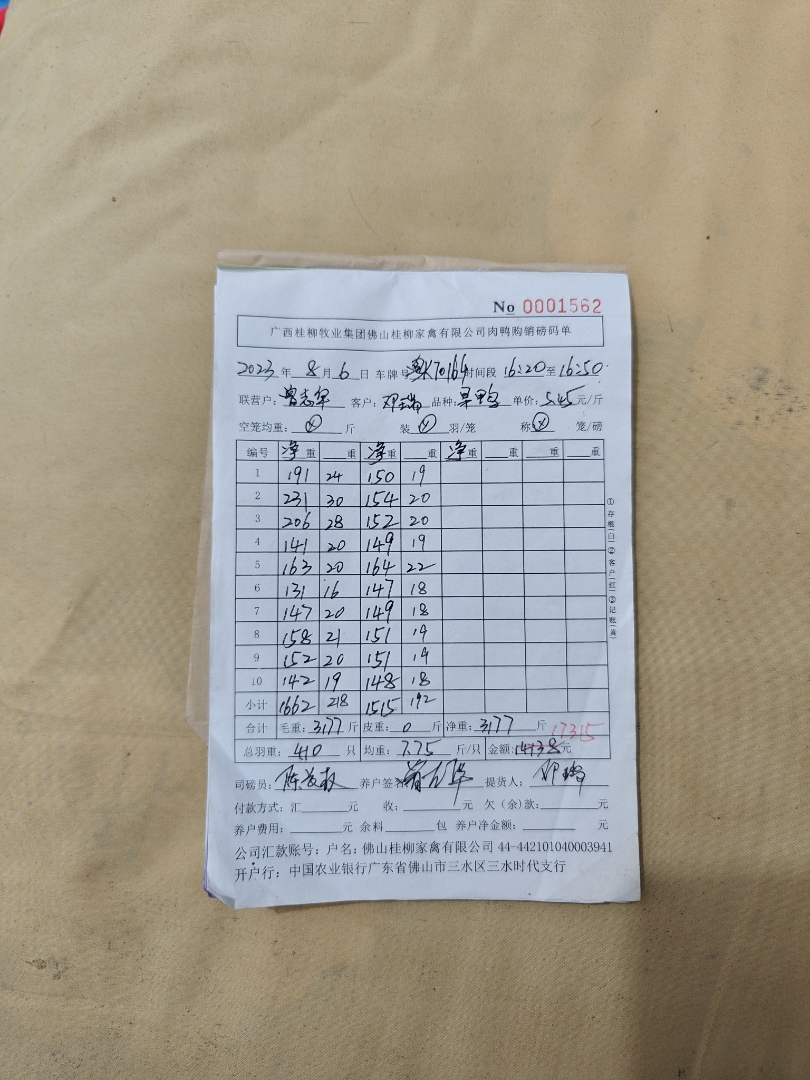 No 0001562
广西桂柳牧业集团佛山桂柳家禽有限公司肉鸭购销磅码单
2023 年 8 月 6 日 车牌号 粤K70164 时间段 16:20 至 16:50
联营户: 曾志华 客户: 邓瑞 品种: 旱鸭 单价: 5.45 元/斤
空笼均重: 斤 装 羽/笼 称 笼/磅
编号 净重 重 净重 重 净重 重 重 重
1 191 24 150 19
2 231 30 154 20
3 206 28 152 20
4 141 20 149 19
5 163 20 164 22
6 131 16 147 18
7 147 20 149 18
8 158 21 151 19
9 152 20 151 19
10 142 19 148 18
小计 1662 218 1515 192
合计 毛重: 3177 斤 皮重: 0 斤 净重: 3177 斤 17315
总羽重: 410 只 均重: 7.75 斤/只 金额: 元
司磅员: 养户签名 提货人: 邓瑞
付款方式: 汇 元 收: 元 欠(余)款: 元
养户费用: 元 余料 包 养户净金额: 元
公司汇款账号: 户名: 佛山桂柳家禽有限公司 44-442101040003941
开户行: 中国农业银行广东省佛山市三水区三水时代支行
①存根(白)②客户(红)③记账(黄)